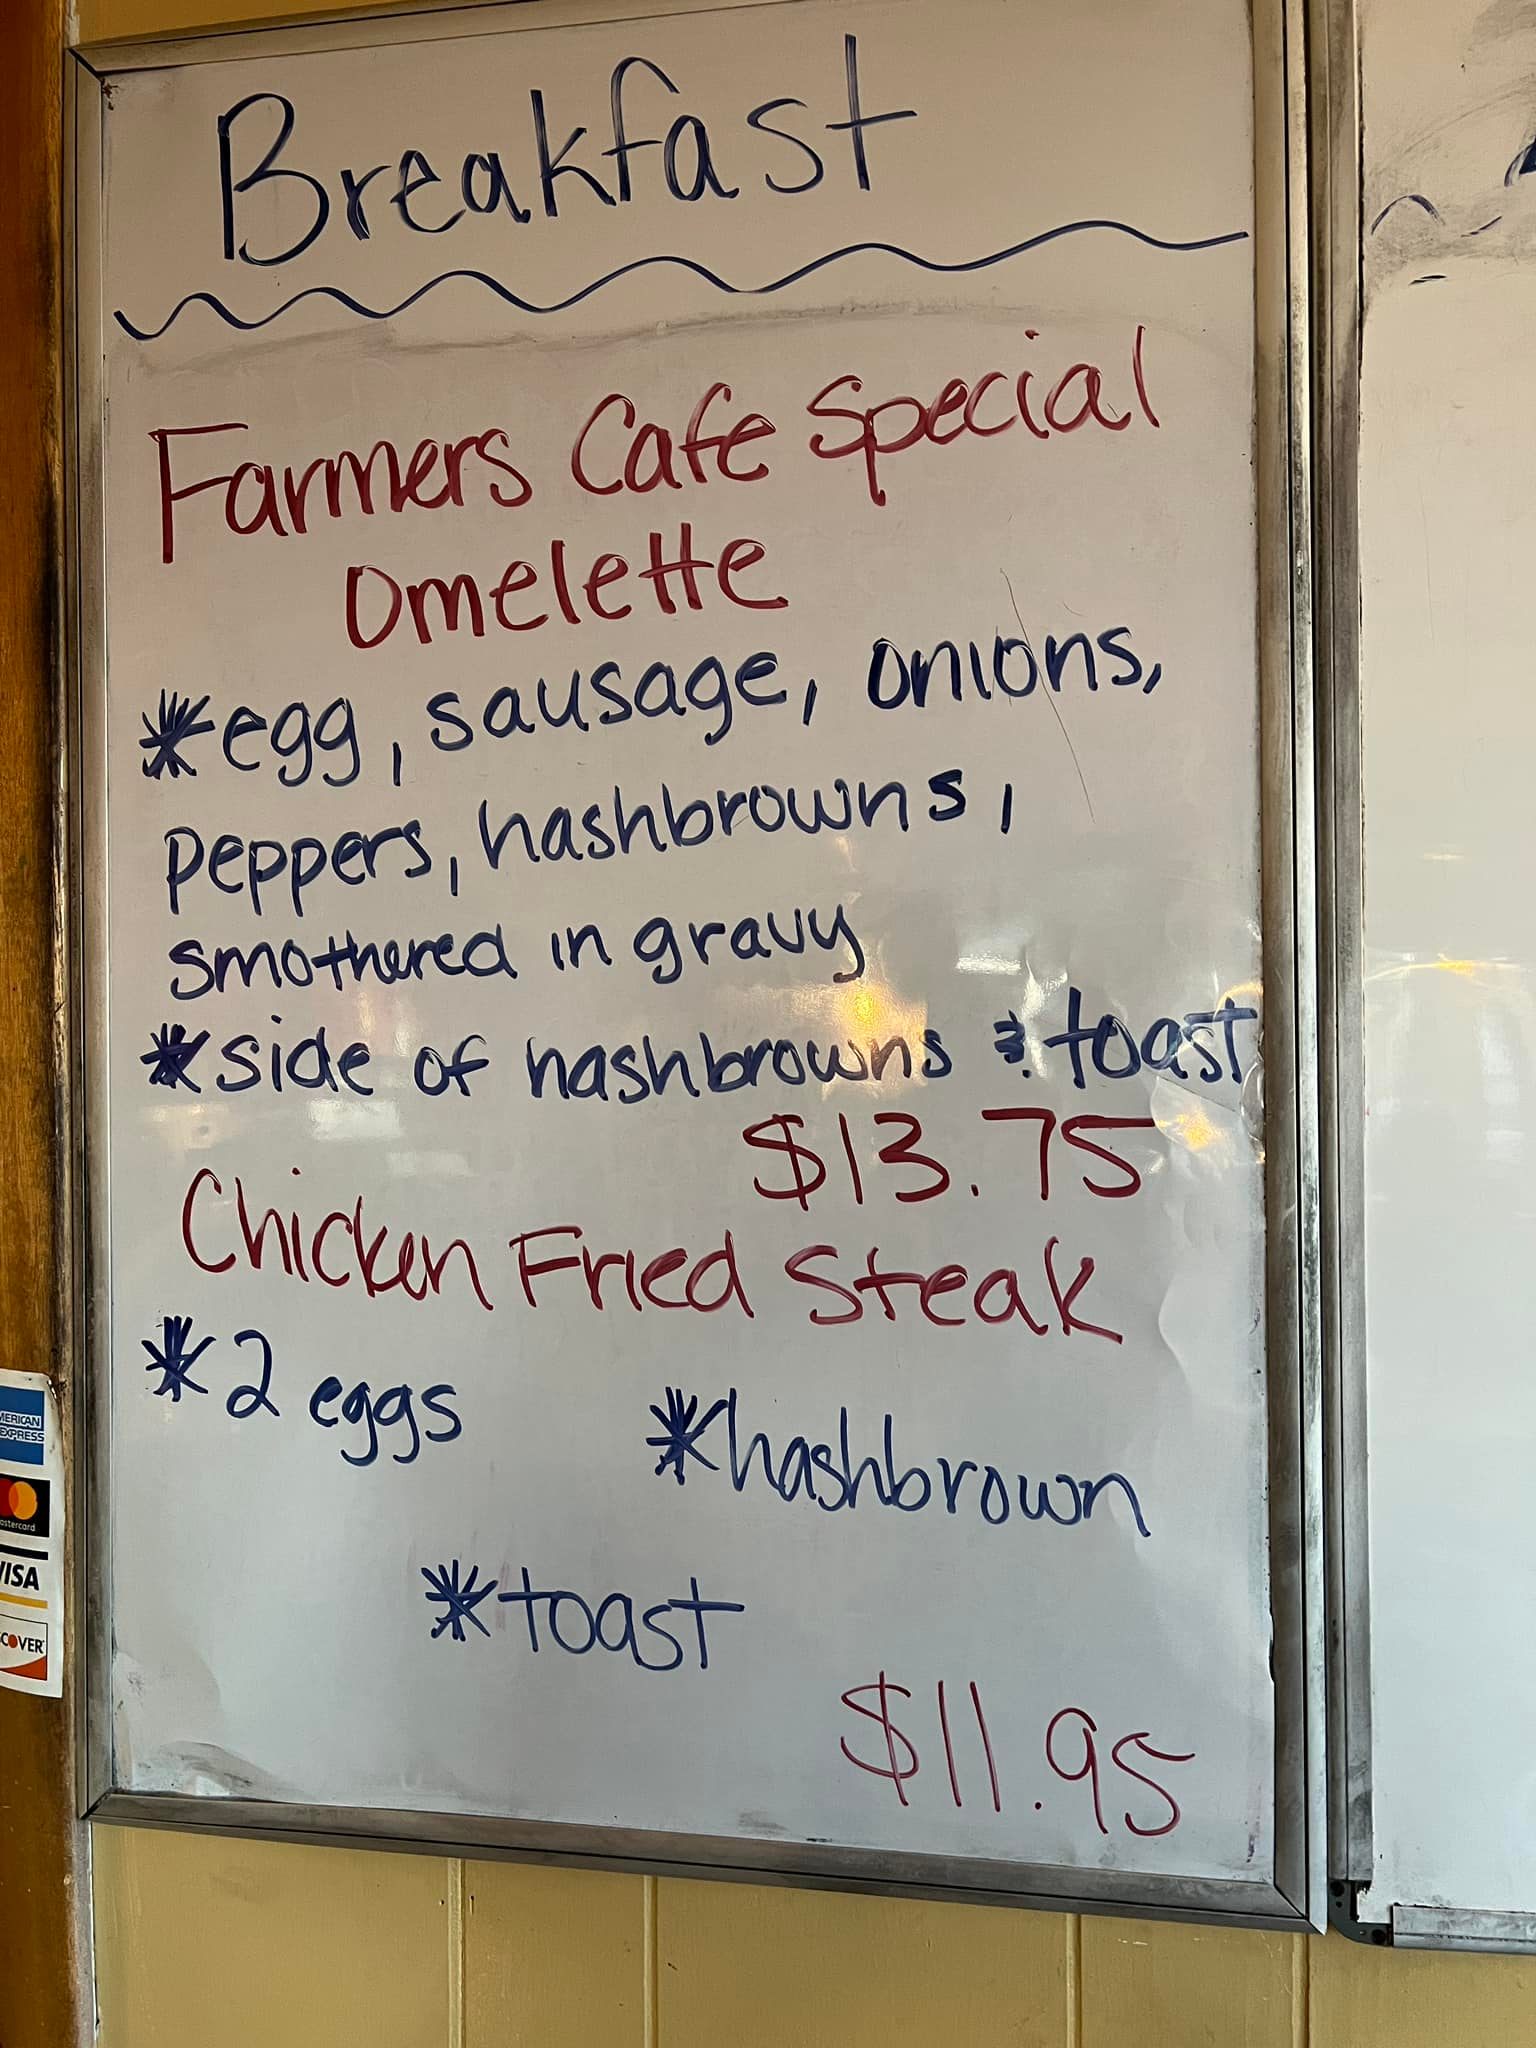 Breakfast
Farmers Cafe Special
Omelette
*egg, sausage, onions,
peppers, hashbrowns,
smothered in gravy
*side of hashbrowns & toast
$13.75
Chicken Fried Steak
*2 eggs
*hashbrown
*toast
$11.95
AMERICAN
EXPRESS
mastercard
VISA
DISCOVER